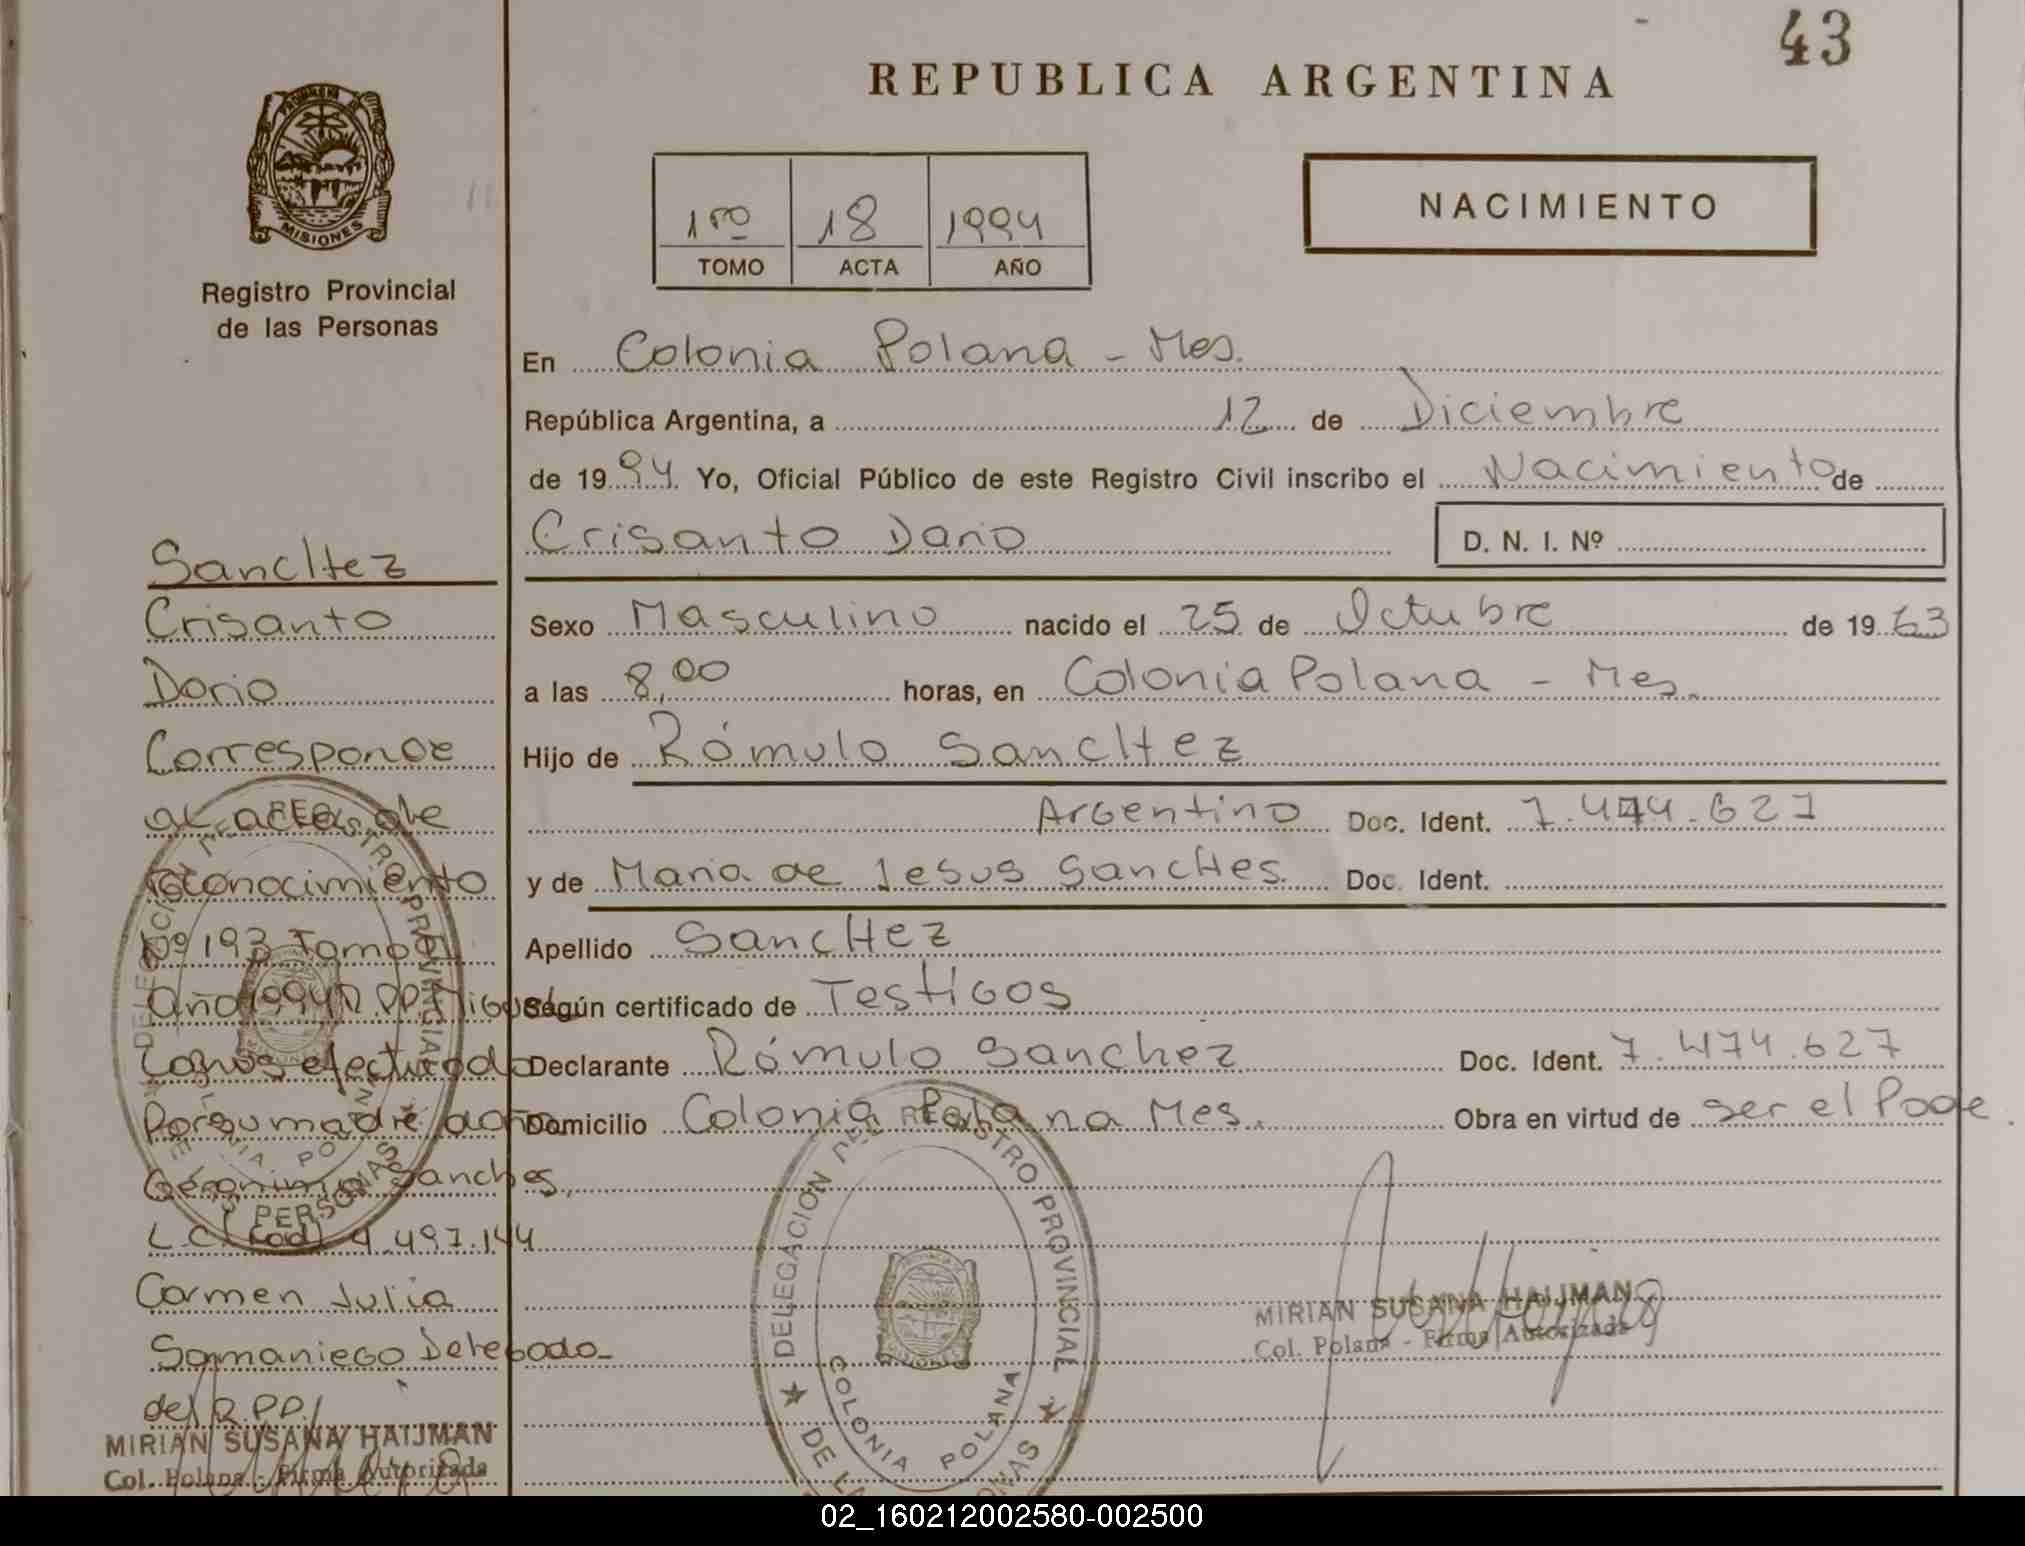 43
REPUBLICA ARGENTINA
MISIONES
Registro Provincial
de las Personas
1ro 18 1994
TOMO ACTA AÑO
NACIMIENTO
En Colonia Polana - Mes.
República Argentina, a 12 de Diciembre
de 1994. Yo, Oficial Público de este Registro Civil inscribo el Nacimiento de
Crisanto Dario D. N. I. Nº
Sexo Masculino nacido el 25 de Octubre de 1963
a las 8,00 horas, en Colonia Polana - Mes.
Hijo de Rómulo Sanchez
Argentino Doc. Ident. 7.474.627
y de Maria de Jesus Sanches. Doc. Ident.
Apellido Sanchez
Según certificado de Testigos
Declarante Rómulo Sanchez Doc. Ident. 7.474.627
Domicilio Colonia Polana Mes. Obra en virtud de ser el Pade.
Sanchez
Crisanto
Dario
Corresponde
al acta de
reconocimiento
Nº 193 Tomo
Año 1994 R.PP. Miguel
Lanus efectuado
Por su madre doña
Geronima Sanches,
L.C. 4.497.144
Carmen Julia
Samaniego Delegada
del R.PP.
MIRIAN SUSANA HAIJMAN
Col. Polana - Firma Autorizada
DELEGACION DEL REGISTRO PROVINCIAL
DE LAS PERSONAS
COLONIA POLANA
MIRIAN SUSANA HAIJMAN
Col. Polana - Firma Autorizada
DELEGACION DEL REGISTRO PROVINCIAL
DE LAS PERSONAS
COLONIA POLANA
MISIONES
02_160212002580-002500